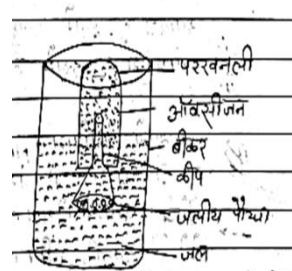 परखनली
ऑक्सीजन
बीकर
कीप
जलीय पौधा
जल